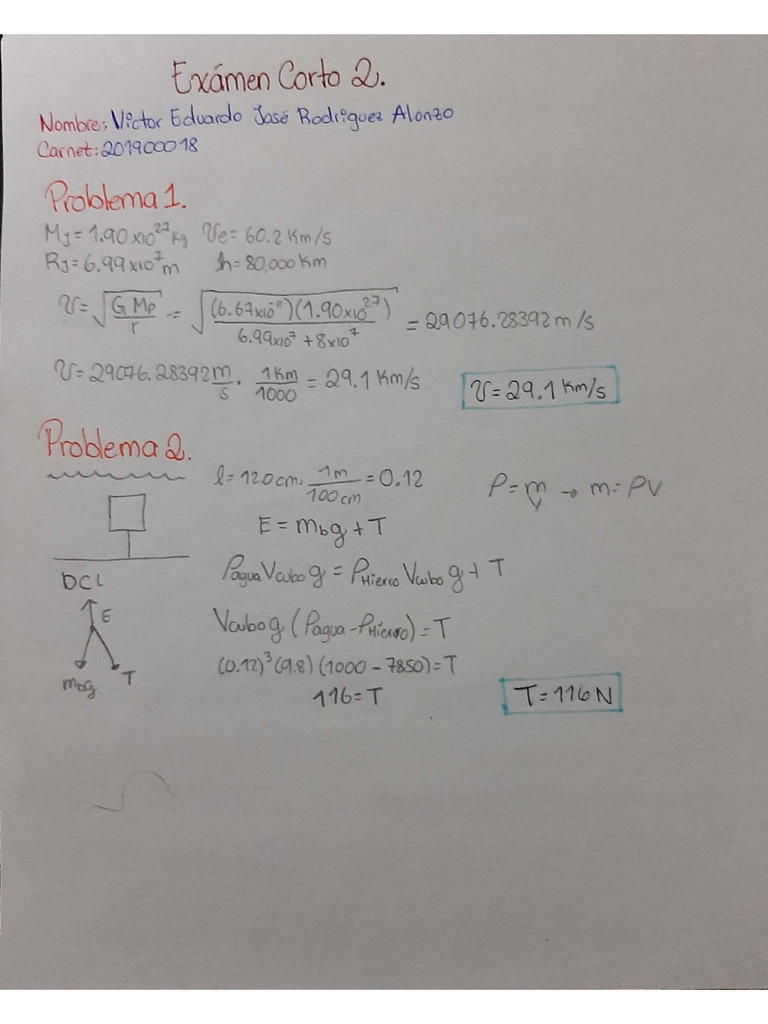 Exámen Corto 2.
Nombre: Victor Eduardo José Rodriguez Alonzo
Carnet: 201900018
Problema 1.
MJ = 1.90x10^27 kg   Ve = 60.2 Km/s
RJ = 6.99x10^7 m   h = 80,000 Km
V = √(G Mp / r) = √((6.67x10^-11)(1.90x10^27) / (6.99x10^7 + 8x10^7)) = 29076.28392 m/s
V = 29076.28392 m/s · 1 Km/1000 = 29.1 Km/s   V = 29.1 Km/s
Problema 2.
l = 120 cm · 1m/100cm = 0.12   P = m/V → m = PV
E = mbg + T
DCL   Pagua Vcubo g = PHierro Vcubo g + T
E   Vcubo g (Pagua - PHierro) = T
mbg   T   (0.12)^3 (9.8) (1000 - 7850) = T
116 = T   T = 116 N